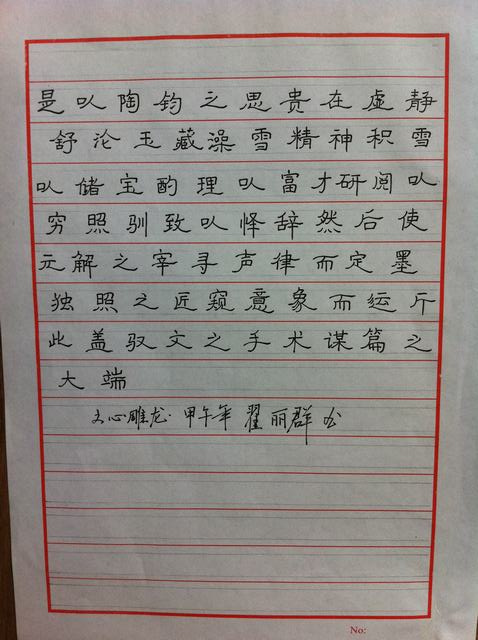 是以陶钧之思贵在虚静
舒沦玉藏澡雪精神积雪
以储宝酌理以富才研阅以
穷照驯致以怿辞然后使
元解之宰寻声律而定墨
独照之匠窥意象而运斤
此盖驭文之手术谋篇之
大端
文心雕龙·甲午年 翟丽群书
No: